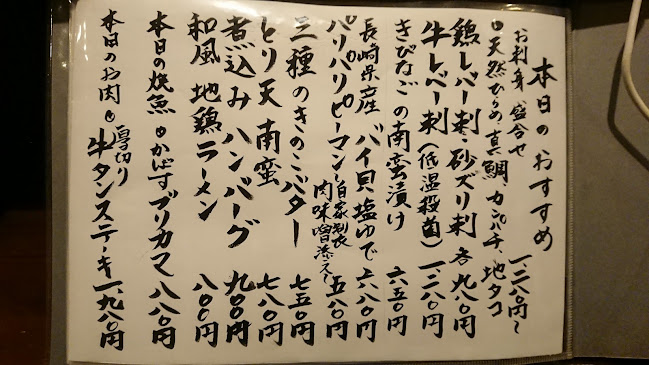 本日のおすすめ
お刺身盛合せ 一、二八〇円〜
・天然ひらめ・真鯛・カンパチ・地タコ
鶏レバー刺・砂ズリ刺 各九八〇円
牛レバー刺(低温殺菌) 一、二八〇円
きびなごの南蛮漬け 六五〇円
長崎県産 バイ貝塩ゆで 六八〇円
パリパリピーマン〜自家製肉味噌添え〜 五八〇円
三種のきのこバター 七五〇円
とり天南蛮 七八〇円
煮込みハンバーグ 九〇〇円
和風地鶏ラーメン 八〇〇円
本日の焼魚・かぼすブリカマ 八八〇円
本日のお肉・厚切り牛タンステーキ 一、九八〇円